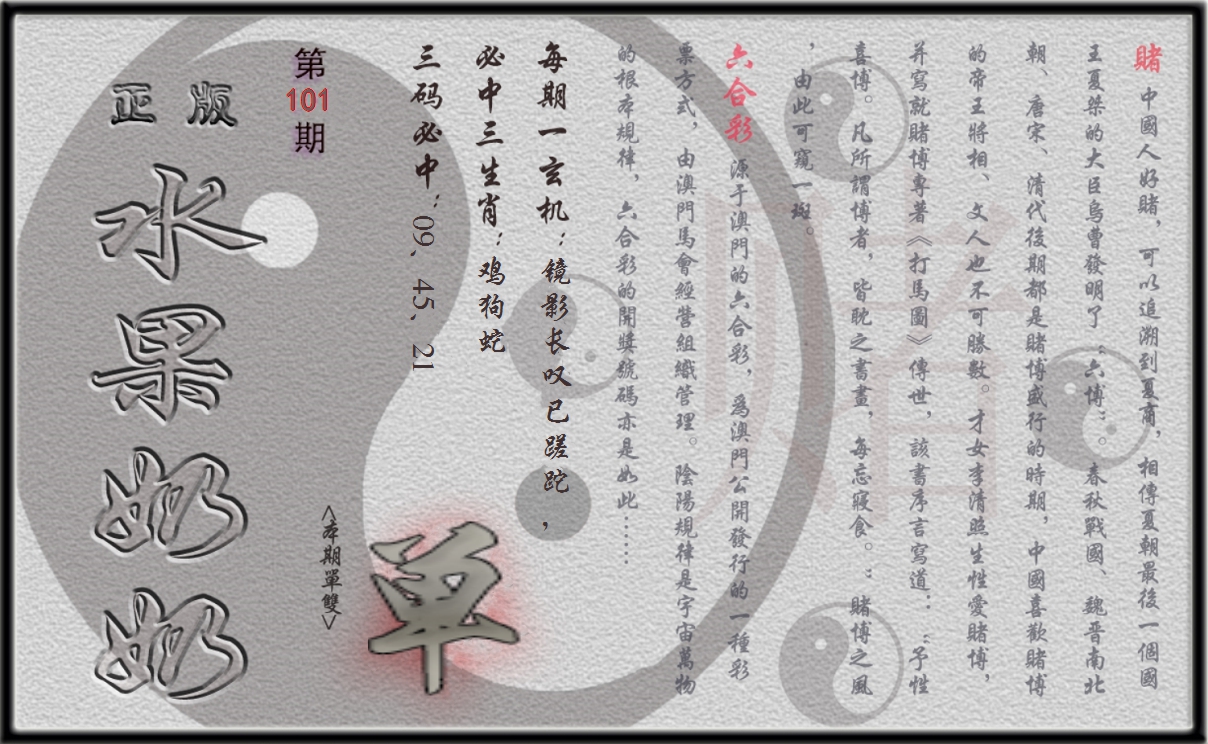 賭 中國人好賭，可以追溯到夏商，相傳夏朝最後一個國
王夏桀的大臣烏曹發明了“六博”。春秋戰國、魏晋南北
朝、唐宋、清代後期都是賭博盛行的時期，中國喜歡賭博
的帝王將相、文人也不可勝數。才女李清照生性愛賭博，
并寫就賭博專著《打馬圖》傳世，該書序言寫道：“予性
喜博。凡所謂博者，皆耽之書畫，每忘寢食。：賭博之風
，由此可窺一斑。
六合彩 源于澳門的六合彩，爲澳門公開發行的一種彩
票方式，由澳門馬會經營組織管理。陰陽規律是宇宙萬物
的根本規律，六合彩的開獎號碼亦是如此……
每期一玄机：镜影长叹已蹉跎，
必中三生肖：鸡狗蛇
三码必中：09、45、21
單
<本期單雙>
第101期
正版
水果奶奶